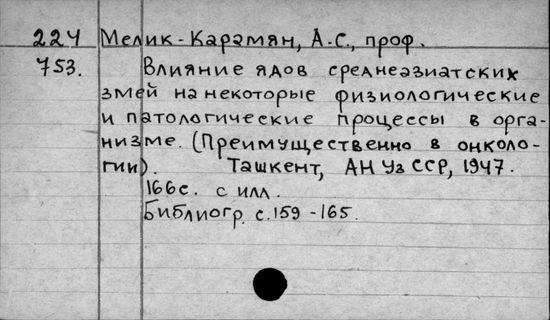 224 Мелик-Карамян, А.С., проф.
753. Влияние ядов среднеазиатских
змей на некоторые физиологические
и патологические процессы в орга-
низме. (Преимущественно в онколо-
гии). Ташкент, АН Уз ССР, 1947.
166с. с илл.
Библиогр. с.159-165.